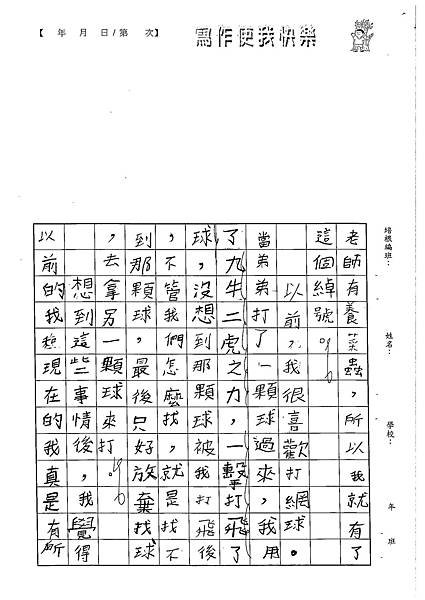 【 年 月 日/第 次】
寫作使我快樂
培根編班：
姓名：
學校：
年 班
老師有養菜蟲，所以我就有了
這個綽號。
以前，我很喜歡打網球。
當弟弟打了一顆球過來，我用
了九牛二虎之力，一擊打飛了
球，沒想到那顆球，被我打飛後
，不管我們怎麼找，就是找不
到那顆球，最後只好放棄找球
，去拿另一顆球來打。
想到這些事情後，我覺得
以前的我跟現在的我真是有所